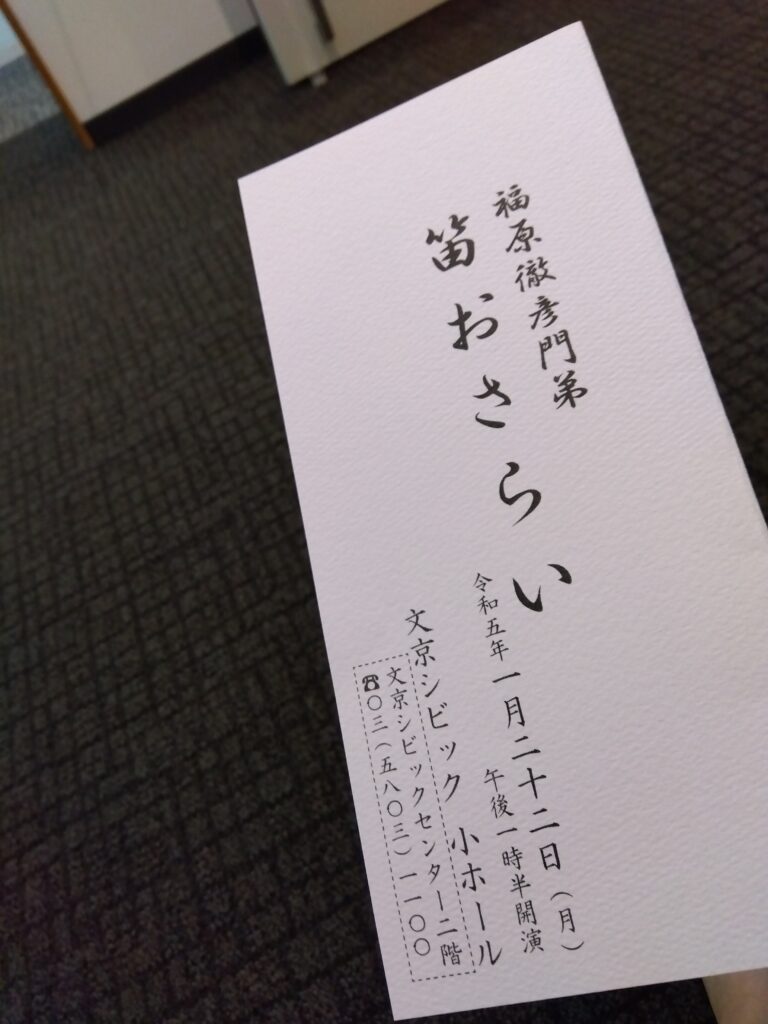 福原徹彦門弟
笛おさらい
令和五年一月二十二日(月)
午後一時半開演
文京シビック 小ホール
文京シビックセンター二階
☎〇三(五八〇三)一一〇〇